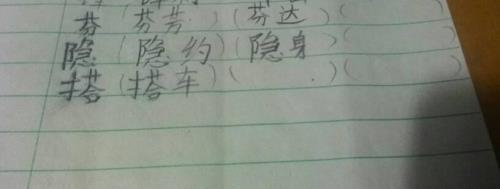 芬(芬芳)(芬达)( )
隐(隐约)(隐身)( )
搭(搭车)( )( )